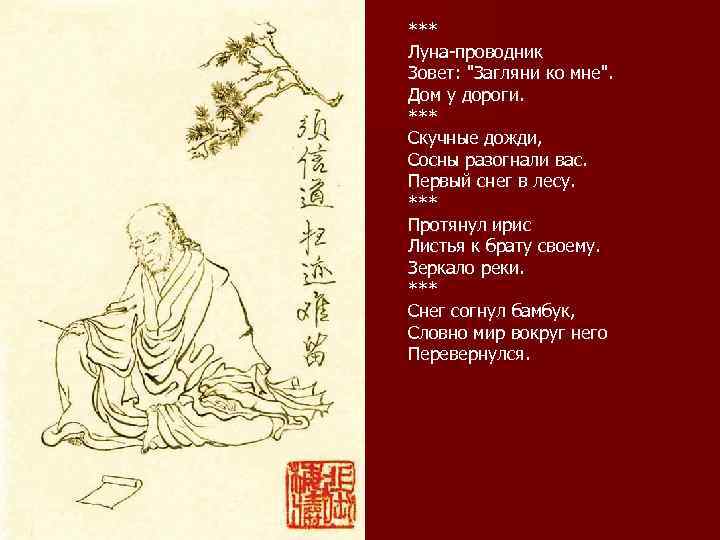 須信道狂迹難留
***
Луна-проводник
Зовет: "Загляни ко мне".
Дом у дороги.
***
Скучные дожди,
Сосны разогнали вас.
Первый снег в лесу.
***
Протянул ирис
Листья к брату своему.
Зеркало реки.
***
Снег согнул бамбук,
Словно мир вокруг него
Перевернулся.